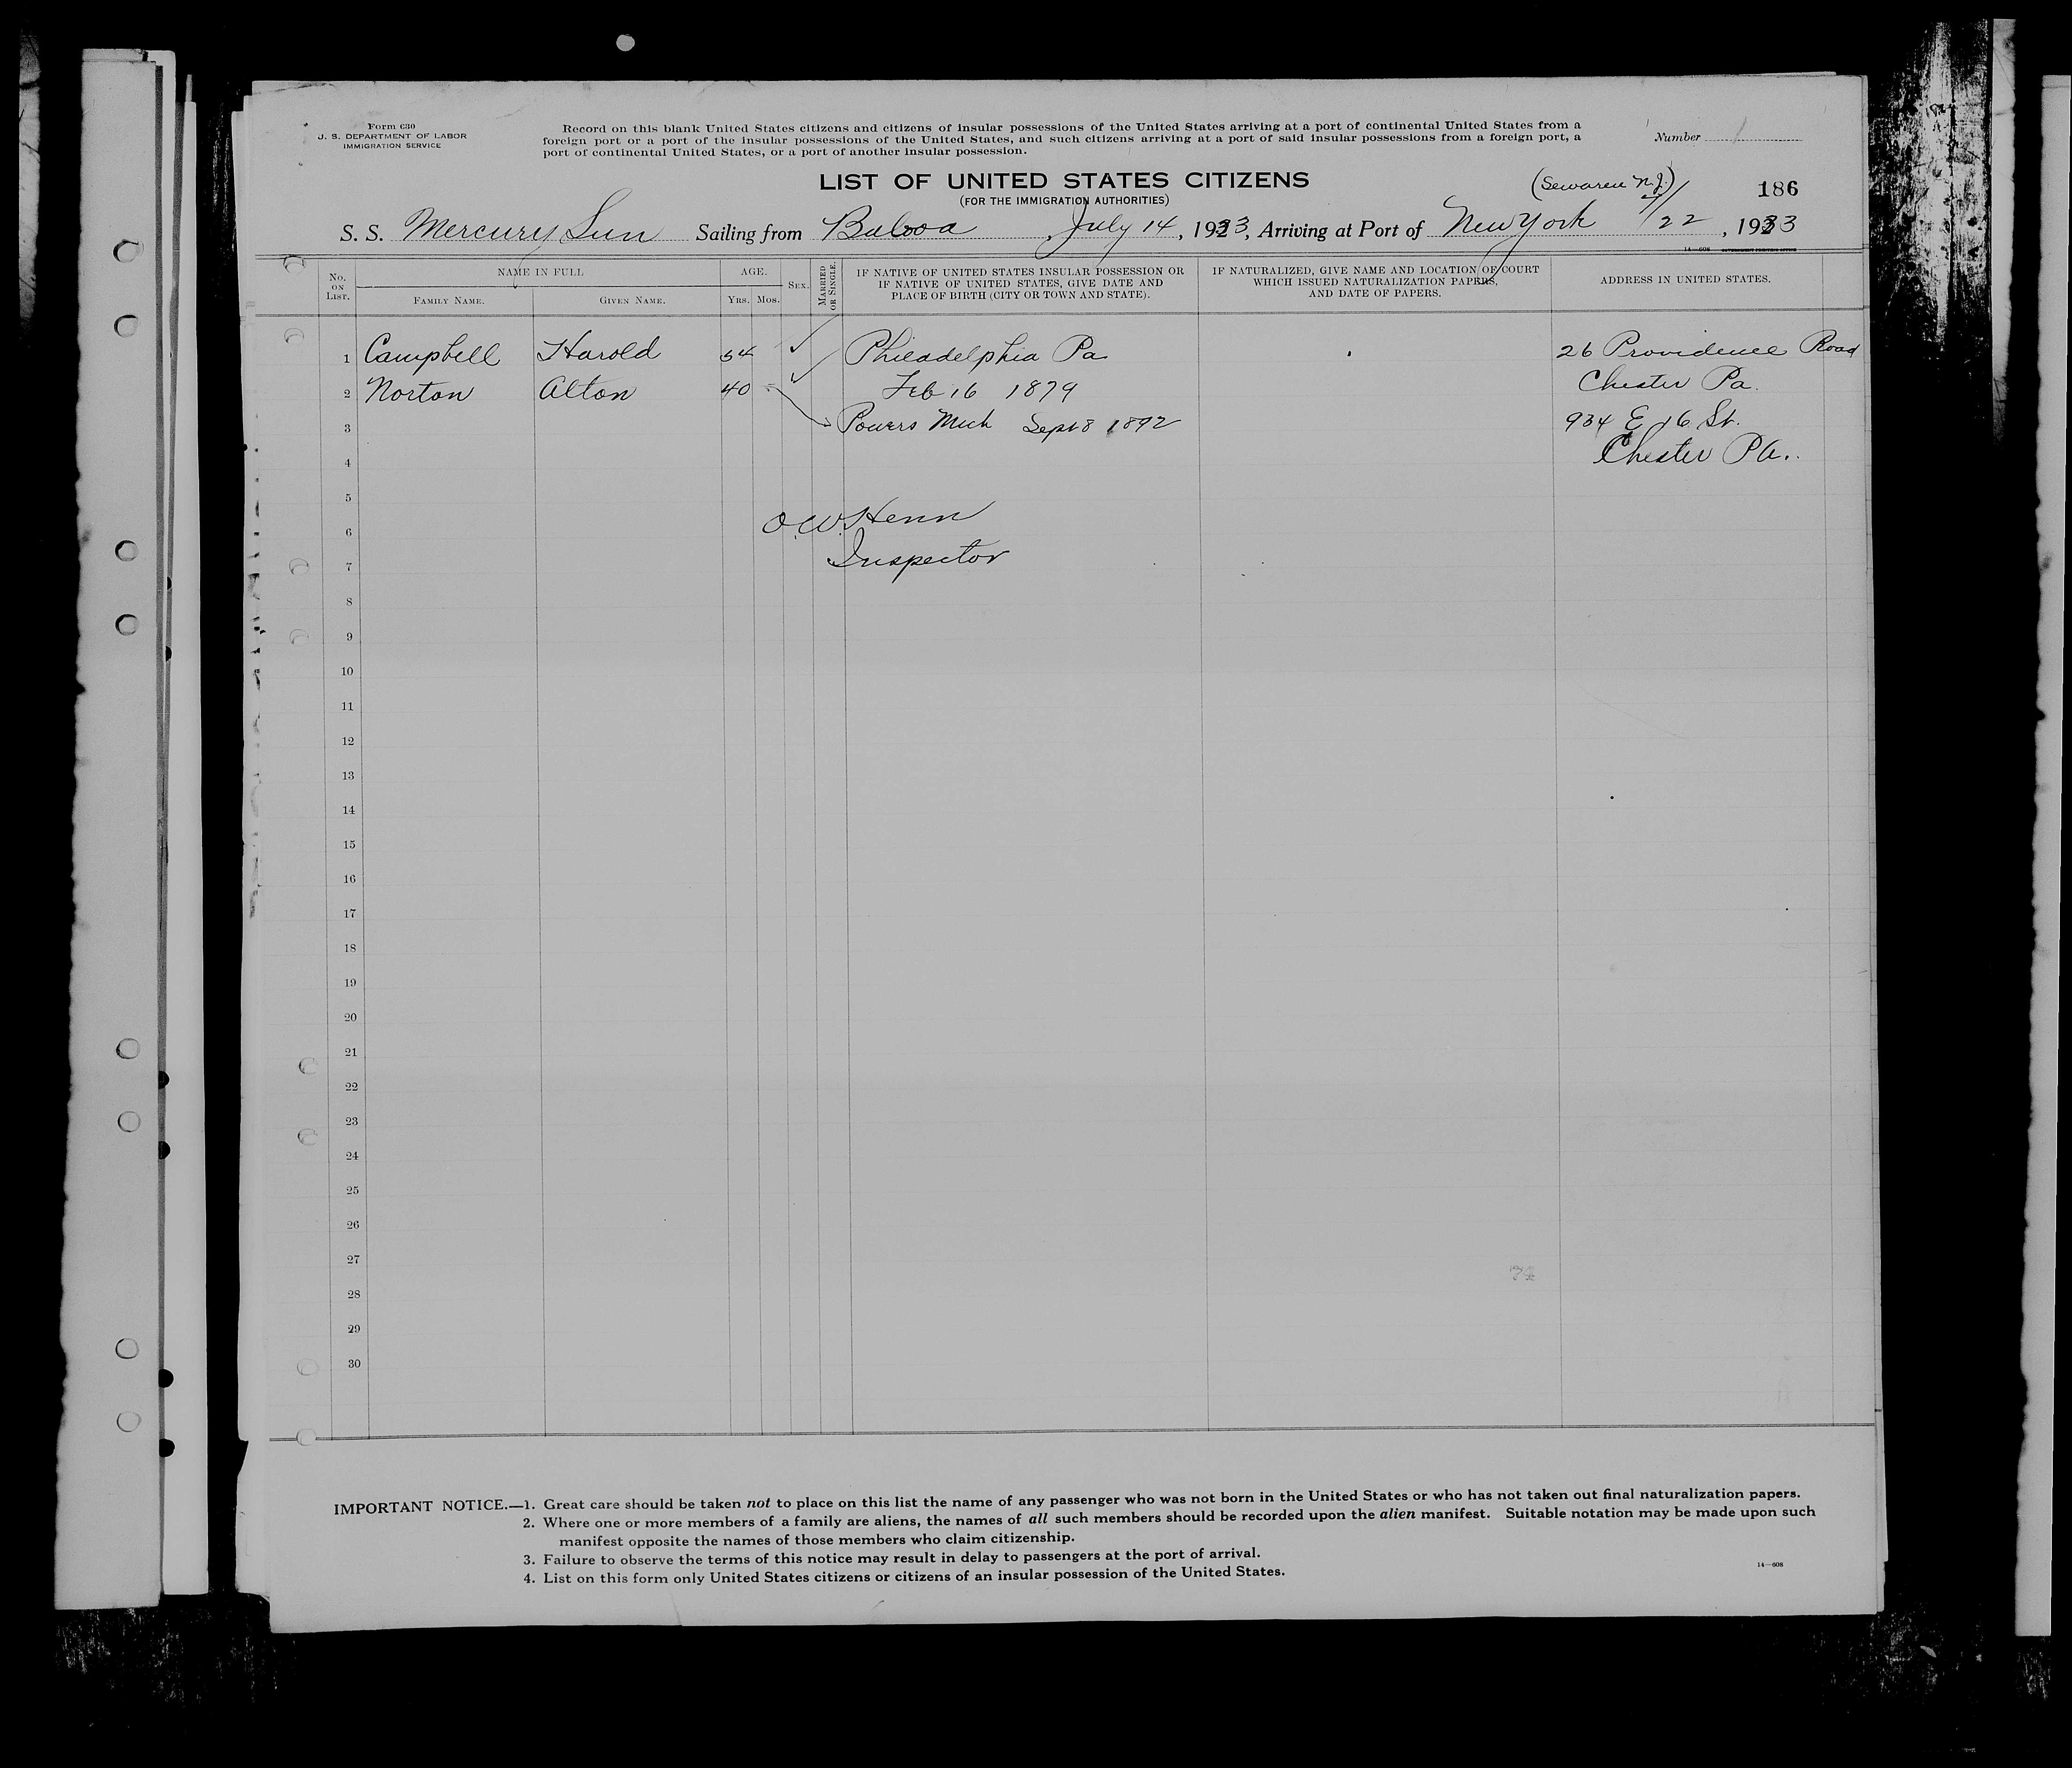 Form 630
U. S. DEPARTMENT OF LABOR
IMMIGRATION SERVICE
Record on this blank United States citizens and citizens of insular possessions of the United States arriving at a port of continental United States from a
foreign port or a port of the insular possessions of the United States, and such citizens arriving at a port of said insular possessions from a foreign port, a
port of continental United States, or a port of another insular possession.
Number 1
LIST OF UNITED STATES CITIZENS
(FOR THE IMMIGRATION AUTHORITIES)
(Sewaren N.J.)
186
S. S. Mercury Sun Sailing from Balboa, July 14, 1933, Arriving at Port of New York 7/22, 1933
14—608
No. ON LIST.
NAME IN FULL
FAMILY NAME.
GIVEN NAME.
AGE.
YRS. MOS.
SEX.
MARRIED OR SINGLE.
IF NATIVE OF UNITED STATES INSULAR POSSESSION OR
IF NATIVE OF UNITED STATES, GIVE DATE AND
PLACE OF BIRTH (CITY OR TOWN AND STATE).
IF NATURALIZED, GIVE NAME AND LOCATION OF COURT
WHICH ISSUED NATURALIZATION PAPERS,
AND DATE OF PAPERS.
ADDRESS IN UNITED STATES.
1 Campbell Harold 54 Philadelphia Pa 26 Providence Road
2 Norton Alton 40 Feb 16 1879 Chester Pa.
3 Powers Mich Sept 8 1892 934 E 16 St.
4 Chester Pa.
5
6 O.W. Henn
7 Inspector
8
9
10
11
12
13
14
15
16
17
18
19
20
21
22
23
24
25
26
27
28
29
30
IMPORTANT NOTICE.—1. Great care should be taken not to place on this list the name of any passenger who was not born in the United States or who has not taken out final naturalization papers.
2. Where one or more members of a family are aliens, the names of all such members should be recorded upon the alien manifest. Suitable notation may be made upon such
manifest opposite the names of those members who claim citizenship.
3. Failure to observe the terms of this notice may result in delay to passengers at the port of arrival.
4. List on this form only United States citizens or citizens of an insular possession of the United States.
14—608